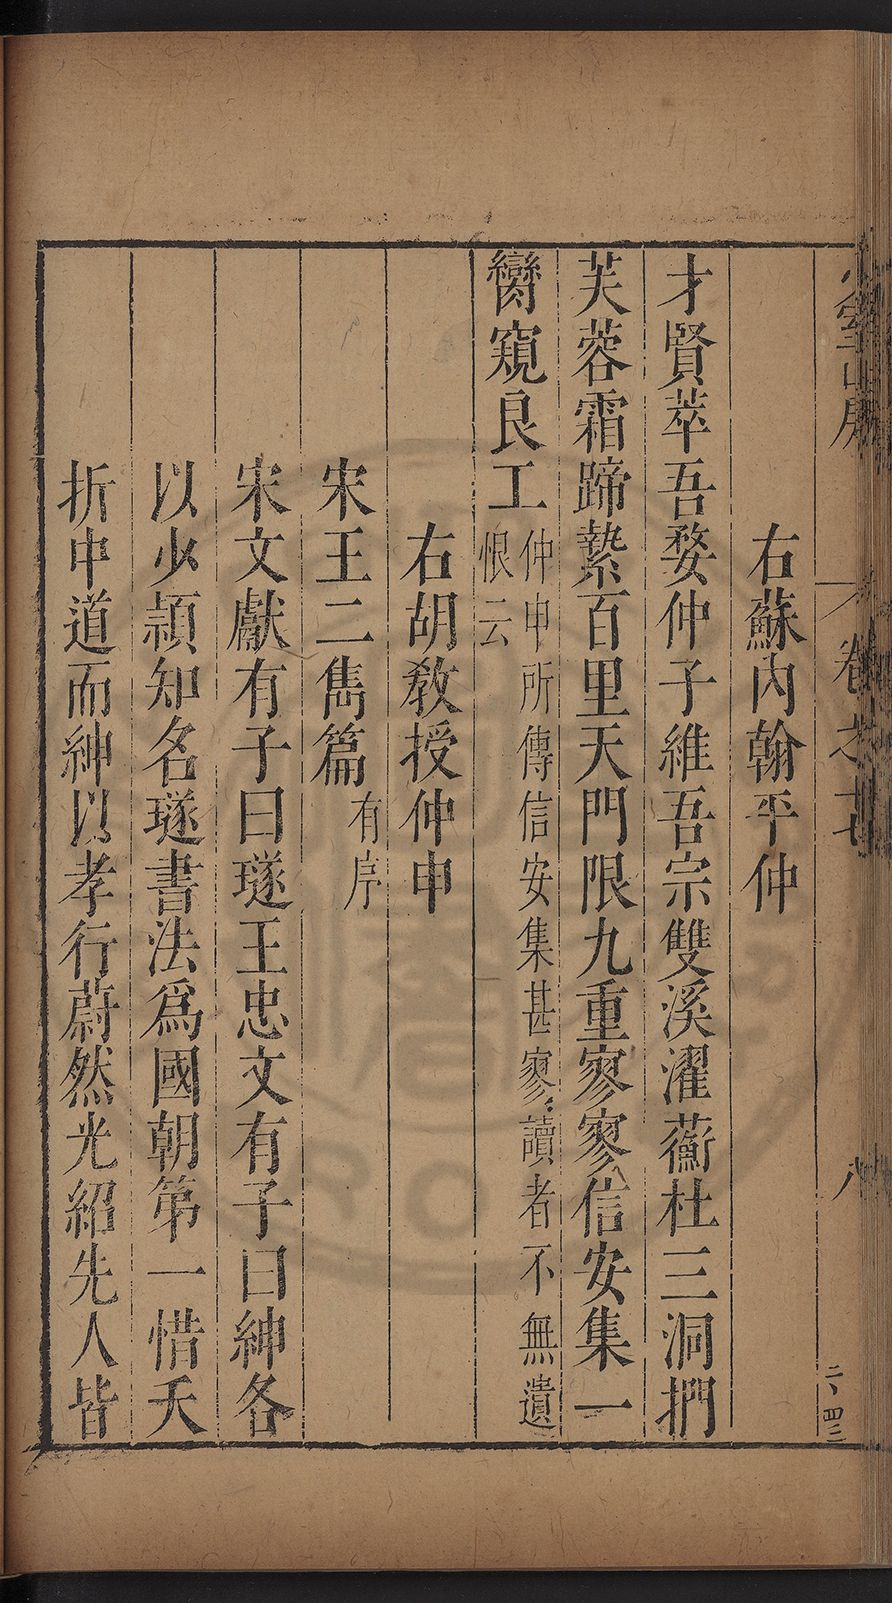 右蘇內翰平仲
才賢萃吾婺仲子維吾宗雙溪濯蘅杜三洞捫
芙蓉霜蹄縶百里天門限九重寥寥信安集一
臠窺良工仲申所傳信安集甚寥寥讀者不無遺
恨云
右胡教授仲申
宋王二雋篇有序
宋文獻有子曰璲王忠文有子曰紳各
以少穎知名璲書法為國朝第一惜夭
折中道而紳以孝行蔚然光紹先人皆
卷之
八
二、四三